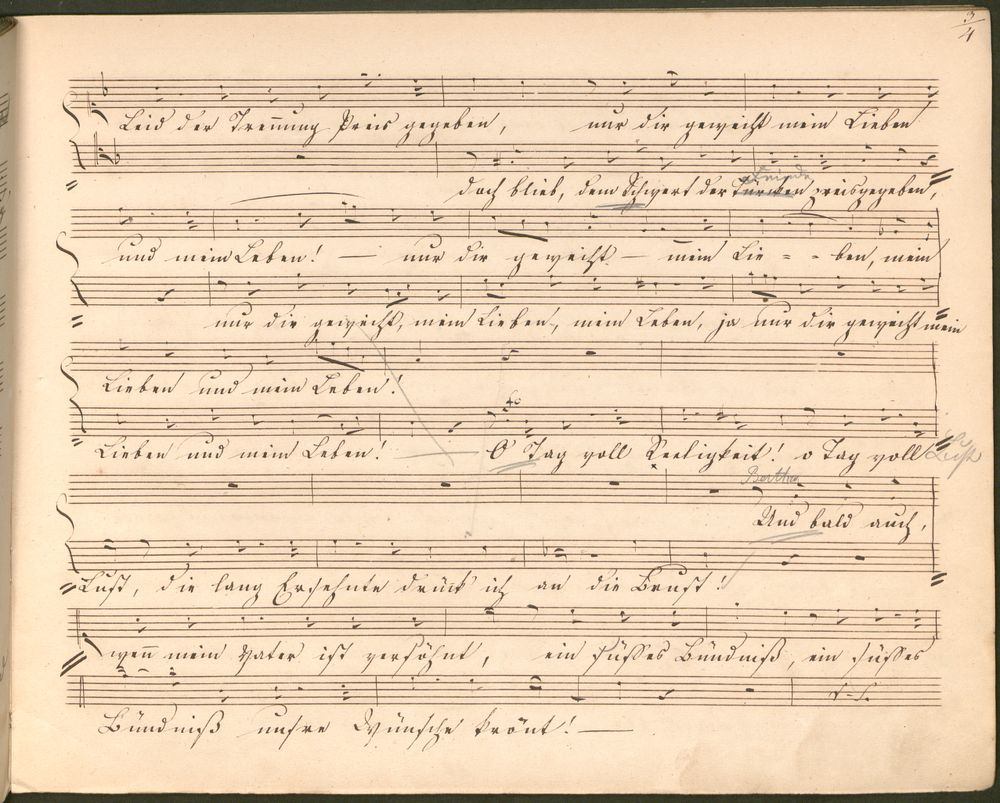 3/4
Leid der Trennung Preis gegeben, nur dir geweiht mein Lieben
Feinde
doch blieb, dem Schwert der Türcken preisgegeben,
und mein Leben! — nur dir geweiht — mein Lie = = ben, mein
nur dir geweiht, mein Lieben, mein Leben, ja nur dir geweiht mein
Lieben und mein Leben!
Lieben und mein Leben! — O Tag voll Seeligkeit! o Tag voll
Lust
Bertha
Und bald auch,
Lust, die lang Ersehnte drück' ich an die Brust!
wen̅ mein Vater ist versöhnt, ein süsses Bündniß, ein süsses
Bündniß unsre Wünsche krönt! —